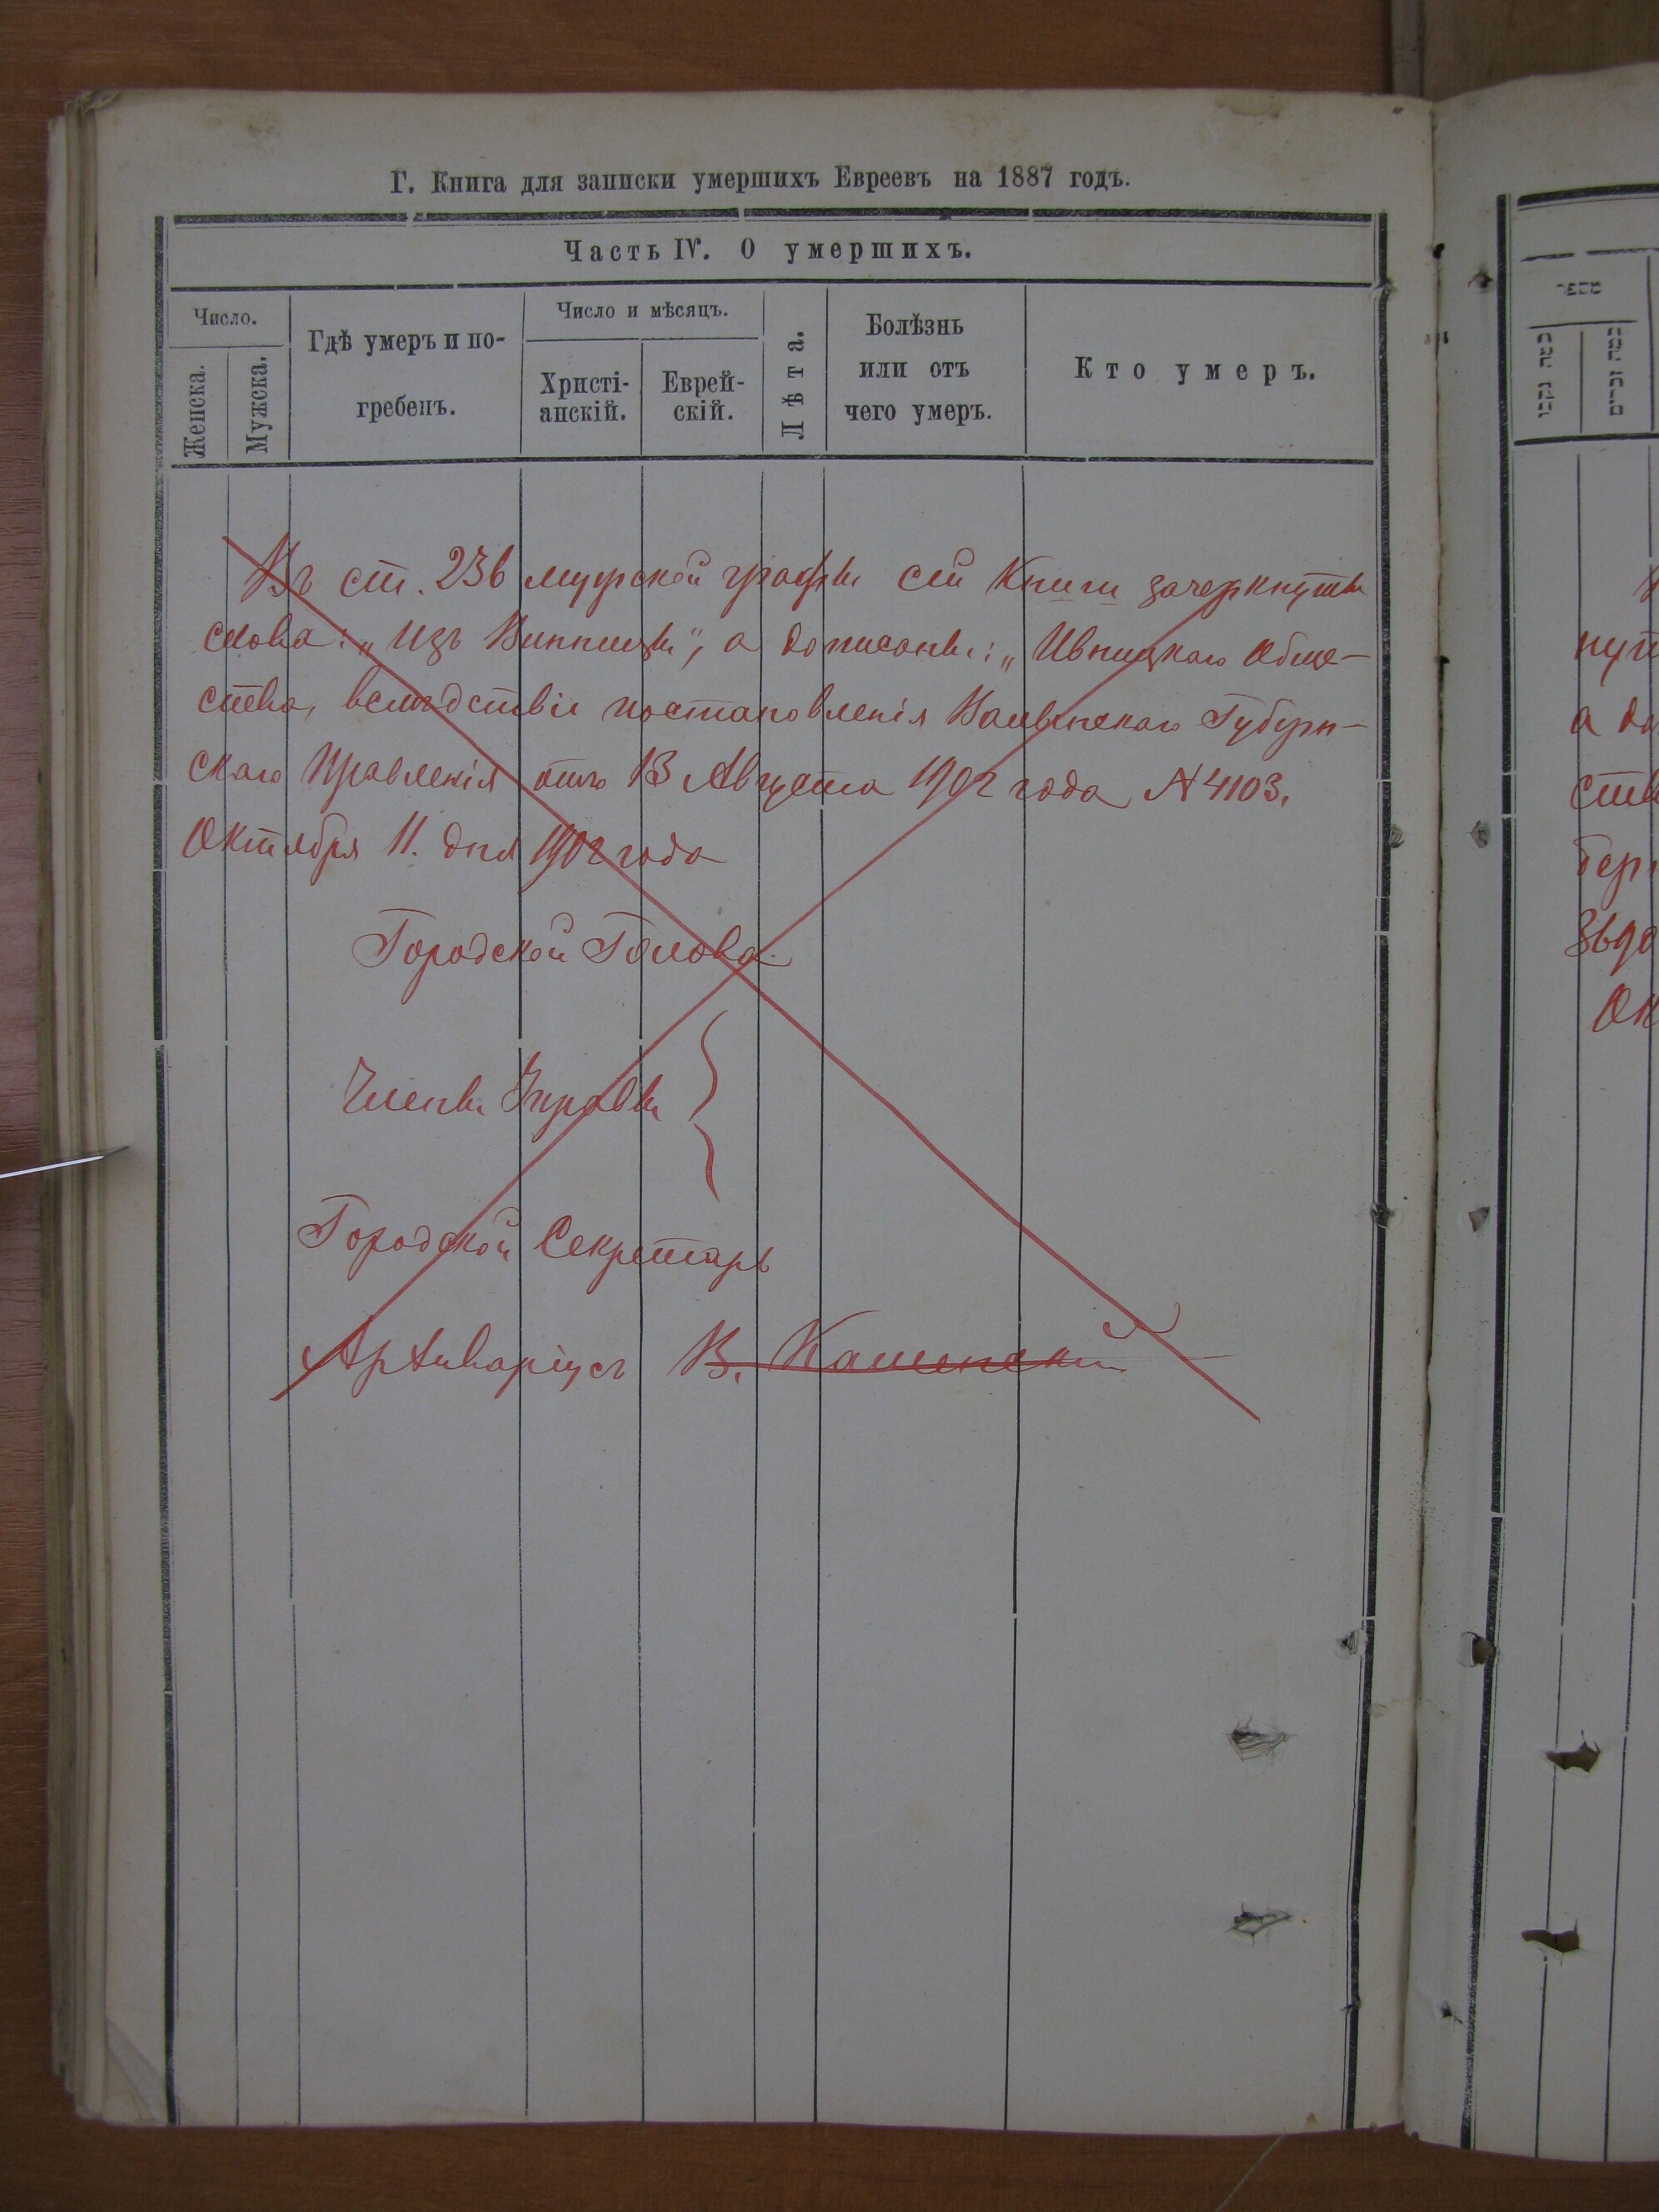 Г. Книга для записки умершихъ Евреевъ на 1887 годъ.
Часть IV. О умершихъ.
Число.
Женска.
Мужска.
Гдѣ умеръ и по-
гребенъ.
Число и мѣсяцъ.
Христі-
анскій.
Еврей-
скій.
Лѣта.
Болѣзнь
или отъ
чего умеръ.
Кто умеръ.
Въ ст. 236 мужской графы сей Книги зачеркнуты
слова: „Изъ Винницы“, а дописаны: „Ивницкаго Обще-
ства, вслѣдствіе постановленія Волынскаго Губерн-
скаго Правленія отъ 13 Августа 1902 года N 4103.
Октября 11. дня 1902 года
Городской Голова
Члены Управы
Городской Секретарь
Архиваріусъ В.
כמה נקבות
כמה זכרים
нут
а до
ств
бер
Ок